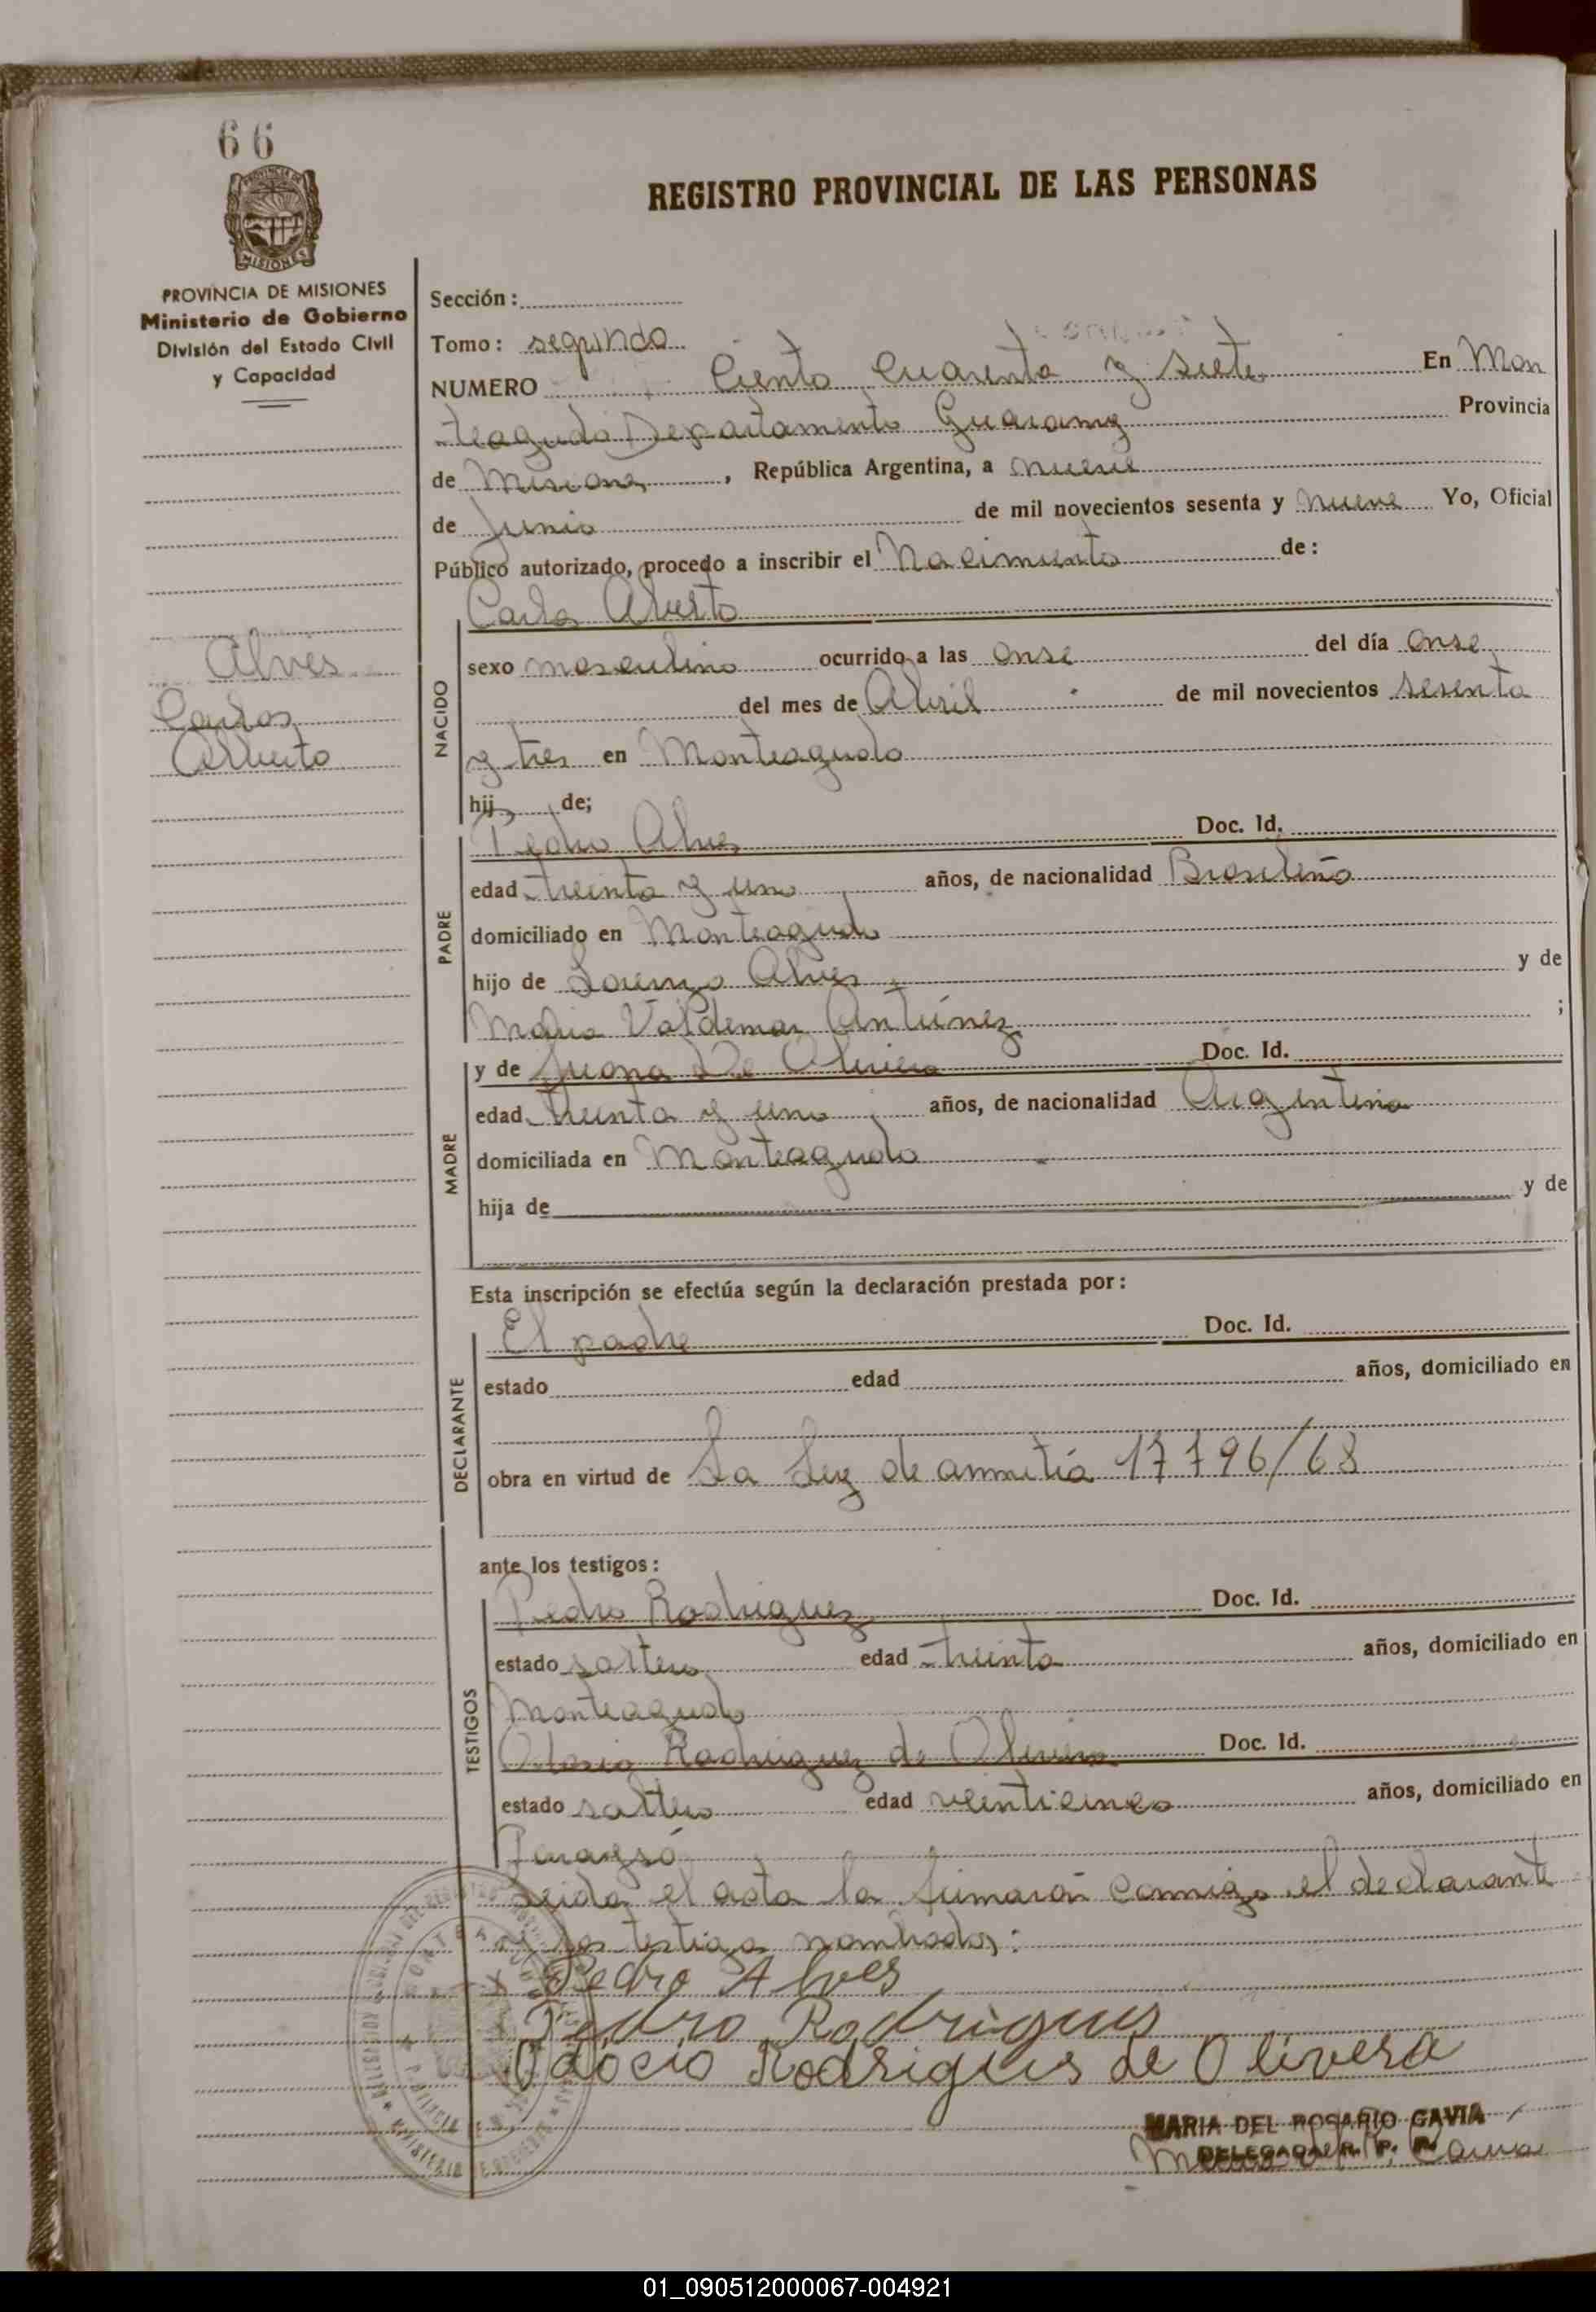 66
REGISTRO PROVINCIAL DE LAS PERSONAS
PROVINCIA DE
MISIONES
PROVINCIA DE MISIONES
Ministerio de Gobierno
División del Estado Civil
y Capacidad
Alves
Carlos
Alberto
Sección:
Tomo: segundo
NUMERO Ciento Cuarenta y siete En Mon
teagudo Departamento Guarany Provincia
de Misiones, República Argentina, a nueve
de Junio de mil novecientos sesenta y nueve Yo, Oficial
Público autorizado, procedo a inscribir el Nacimiento de:
Carlos Alberto
NACIDO
sexo masculino ocurrido a las onse del día onse
del mes de Abril de mil novecientos sesenta
y tres en Monteagudo
hijo de;
PADRE
Pedro Alves Doc. Id.
edad treinta y uno años, de nacionalidad Brasileño
domiciliado en Monteagudo
hijo de Lorenzo Alves y de
Maria Valdemar Antúnez ;
MADRE
y de Juana De Olivera Doc. Id.
edad treinta y uno años, de nacionalidad Argentina
domiciliada en Monteagudo
hija de y de
Esta inscripción se efectúa según la declaración prestada por:
DECLARANTE
El padre Doc. Id.
estado edad años, domiciliado en
obra en virtud de La Ley de amnitía 17796/68
ante los testigos:
TESTIGOS
Pedro Rodriguez Doc. Id.
estado soltero edad treinta años, domiciliado en
Monteagudo
Rodriguez de Olivera Doc. Id.
estado soltero edad veinticinco años, domiciliado en
Paraysó
Leida el acta la firmarón conmigo el declarante
y los testigos nombrados:
Pedro Alves
Pedro Rodrigues
Odocio Rodrigues de Olivera
MARIA DEL ROSARIO GAVIA
DELEGADA R. P. P.
01_090512000067-004921